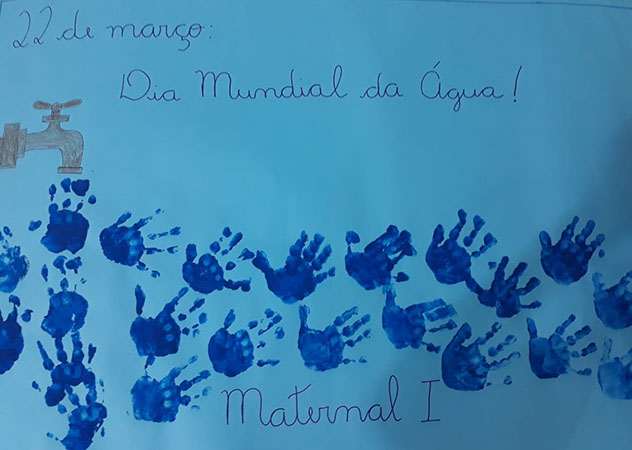 22 de março:
Dia Mundial da Água!
Maternal I